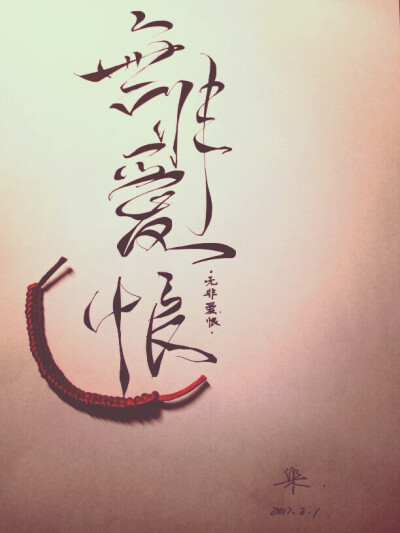 無非愛恨
·无非爱恨·
樂.
2017.3.1.